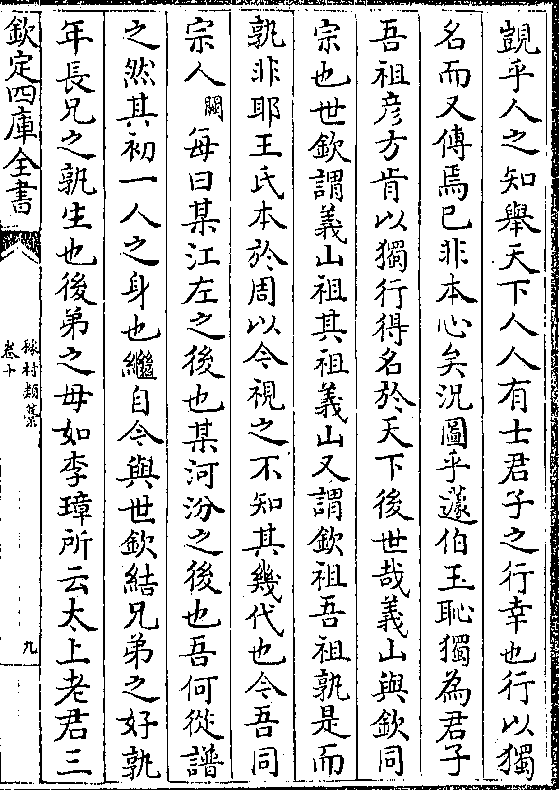 覬乎人之知舉天下人人有士君子之行幸也行以獨
名而又傳焉已非本心矣況圖乎蘧伯玉恥獨為君子
吾祖彦方肯以獨行得名於天下後世哉義山與欽同
宗也世欽謂義山祖其祖義山又謂欽祖吾祖孰是而
孰非耶王氏本於周以今視之不知其幾代也今吾同
宗人闕每曰某江左之後也某河汾之後也吾何從譜
之然其初一人之身也繼自今與世欽結兄弟之好孰
年長兄之孰生也後弟之毋如李璋所云太上老君三
欽定四庫全書
稼村類藁
卷十
九